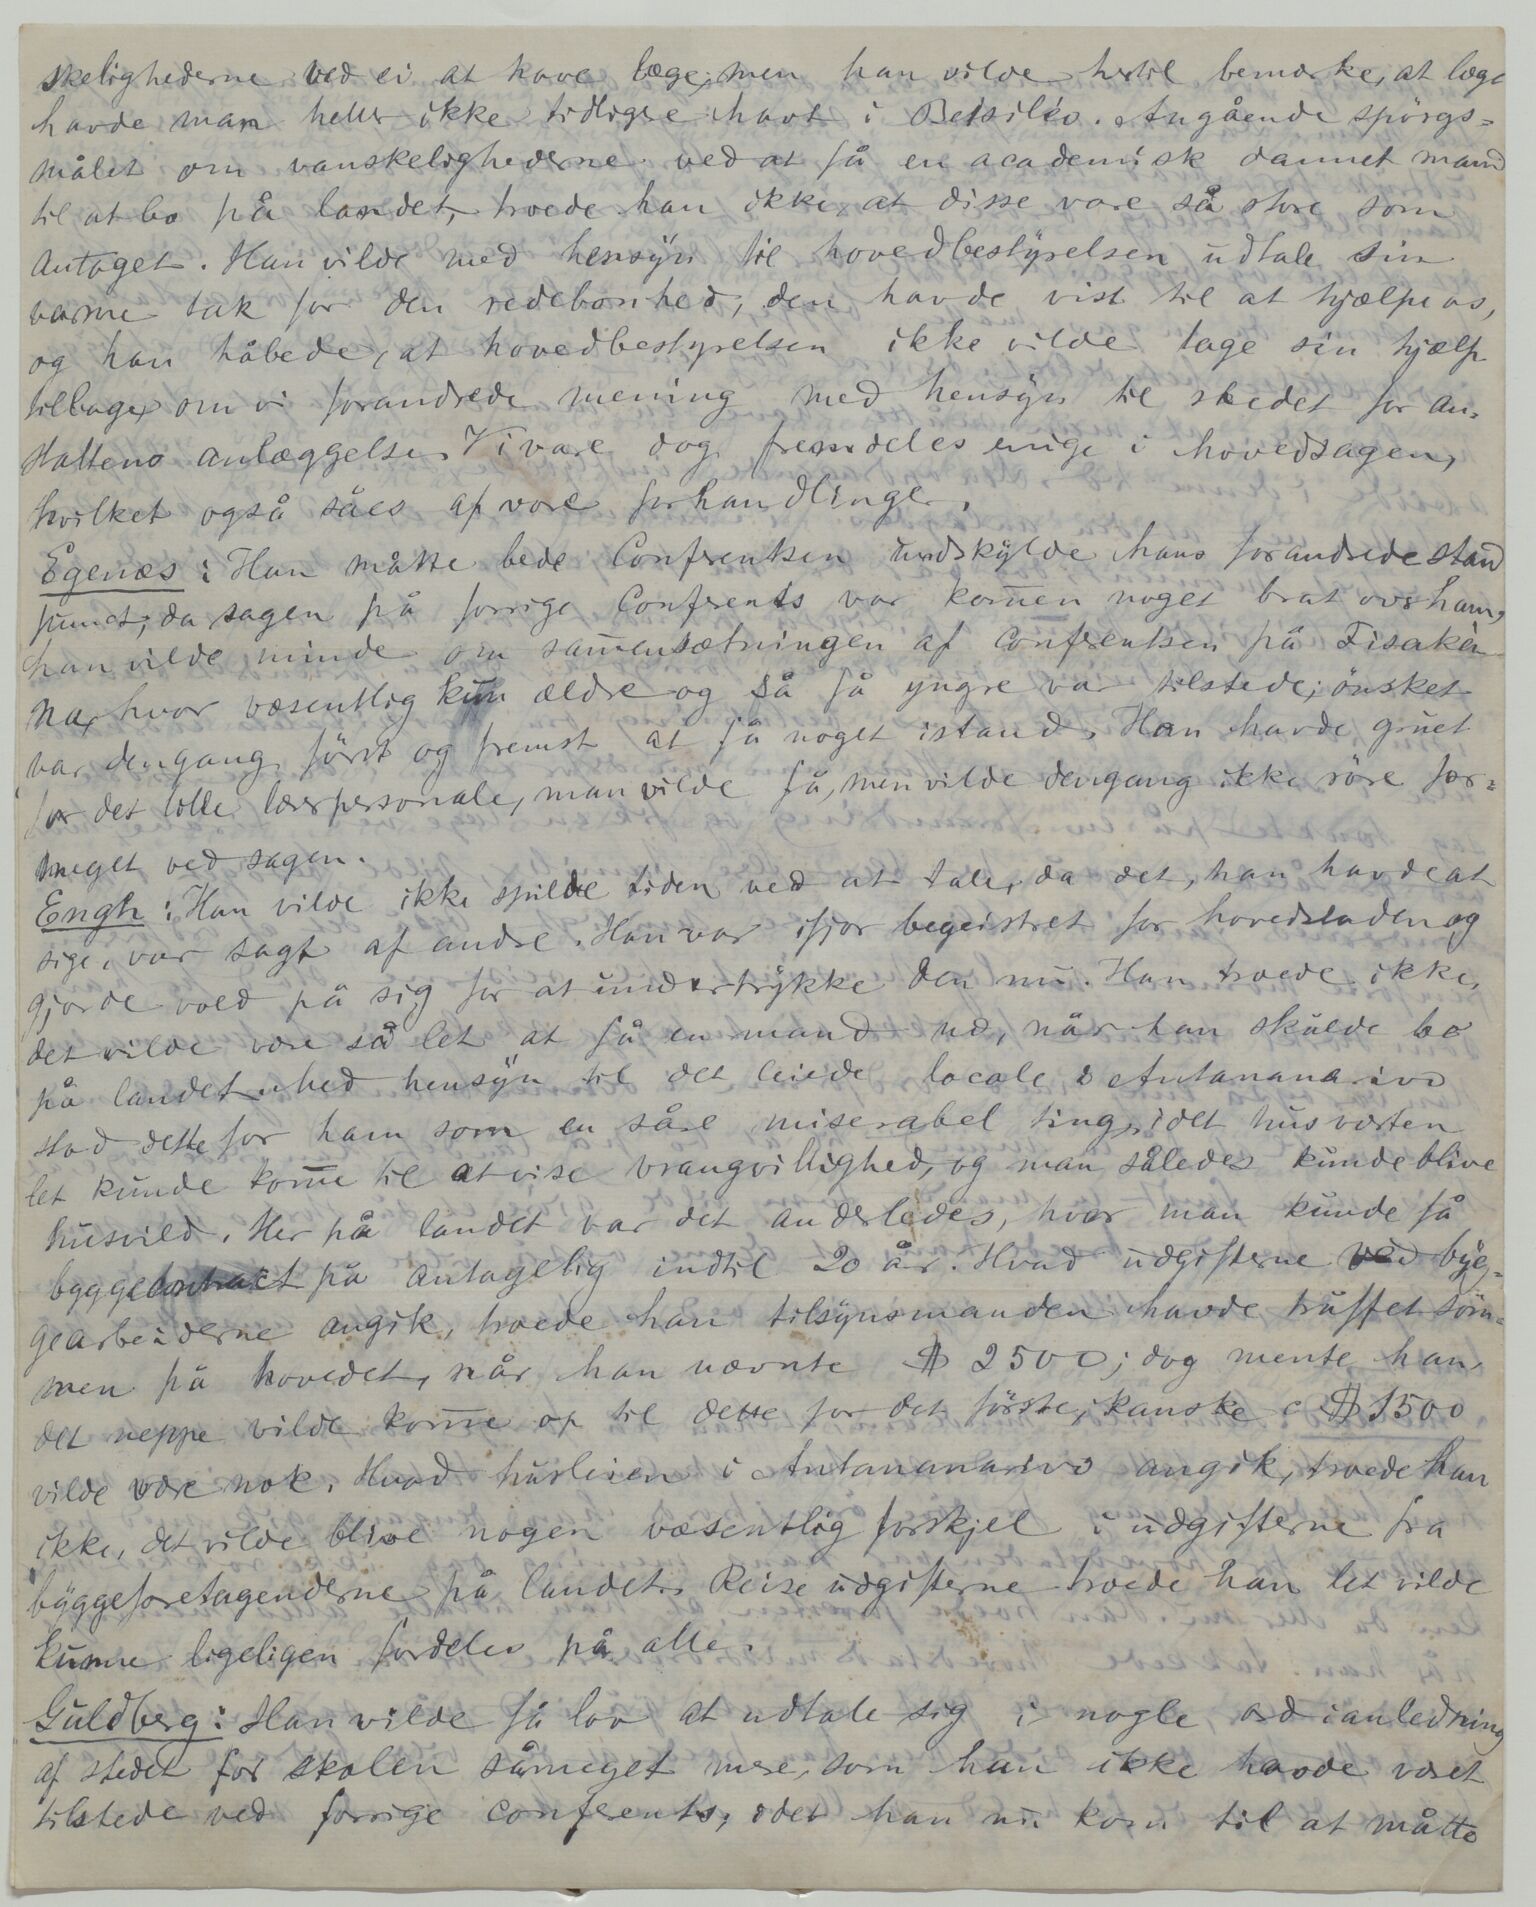 skelighederne ved ei at have læge, men han vilde hertil bemærke, at læge
havde man heller ikke tidligere havt i Betsileo. Angående spörgs=
målet om vanskelighederne ved at få en academisk dannet mand
til at bo på landet, troede han ikke, at disse vare så store som
antaget. Han vilde med hensÿn til hovedbestÿrelsen udtale sin
varme tak for den redebonhed, den havde vist til at hjælpe os,
og han håbede, at hovedbestyrelsen ikke vilde tage sin hjælp
tilbage, om vi forandrede mening med hensÿn til stedet for an-
staltens anlæggelse. Vi vare dog fremdeles enige i hovedsagen,
hvilket også såes af vore forhandlinger.
Egenæs: Han måtte bede Conferentsen undskÿlde hans forandrede stand
punct, da sagen på forrige Conferents var kom̄en noget brat over ham,
han vilde minde om sam̄ensætningen af Conferentsen på Fisaka
na, hvor væsentlig kun ældre og få få yngre var tilstede; önsket
var dengang först og fremst at få noget istand. Han havde gruet
for det lille lærerpersonale, man vilde få, men vilde dengang ikke röre for=
meget ved sagen.
Engh: Han vilde ikke spilde tiden ved at tale, da det, han havde at
sige, var sagt af andre. Han var ifjor begeistret for hovedstaden og
gjorde vold på sig for at undertrÿkke den nu. Han troede ikke,
det vilde være så let at få en mand ud, når han skulde bo
på landet. Med hensÿn til det leiede locale i Antananarivo
stod dette for ham som en såre miserabel ting, idet husværten
let kunde kom̄e til at vise vrangvillighed, og man således kunde blive
husvild. Her på landet var det anderledes, hvor man kunde få
byggecontract på antagelig indtil 20 år. Hvad udgifterne ved bÿg=
gearbeiderne angik, troede han tilsÿnsmanden havde truffet söm=
men på hovedet, når han nævnte $ 2500; dog mente han,
det neppe vilde kom̄e op til dette for det förste, kanske c $ 1500
vilde være nok. Hvad husleien i Antananarivo angik, troede han
ikke, det vilde blive nogen væsentlig forskjel i udgifterne fra
bÿggeforetagenderne på landet. Reiseudgifterne troede han let vilde
kunne ligeligen fordeles på alle.
Guldberg: Han vilde få lov at udtale sig i nogle ord i anledning
af stedet for skolen såmeget mere, som han ikke havde været
tilstede ved forrige conferents, idet han nu kom til at måtte